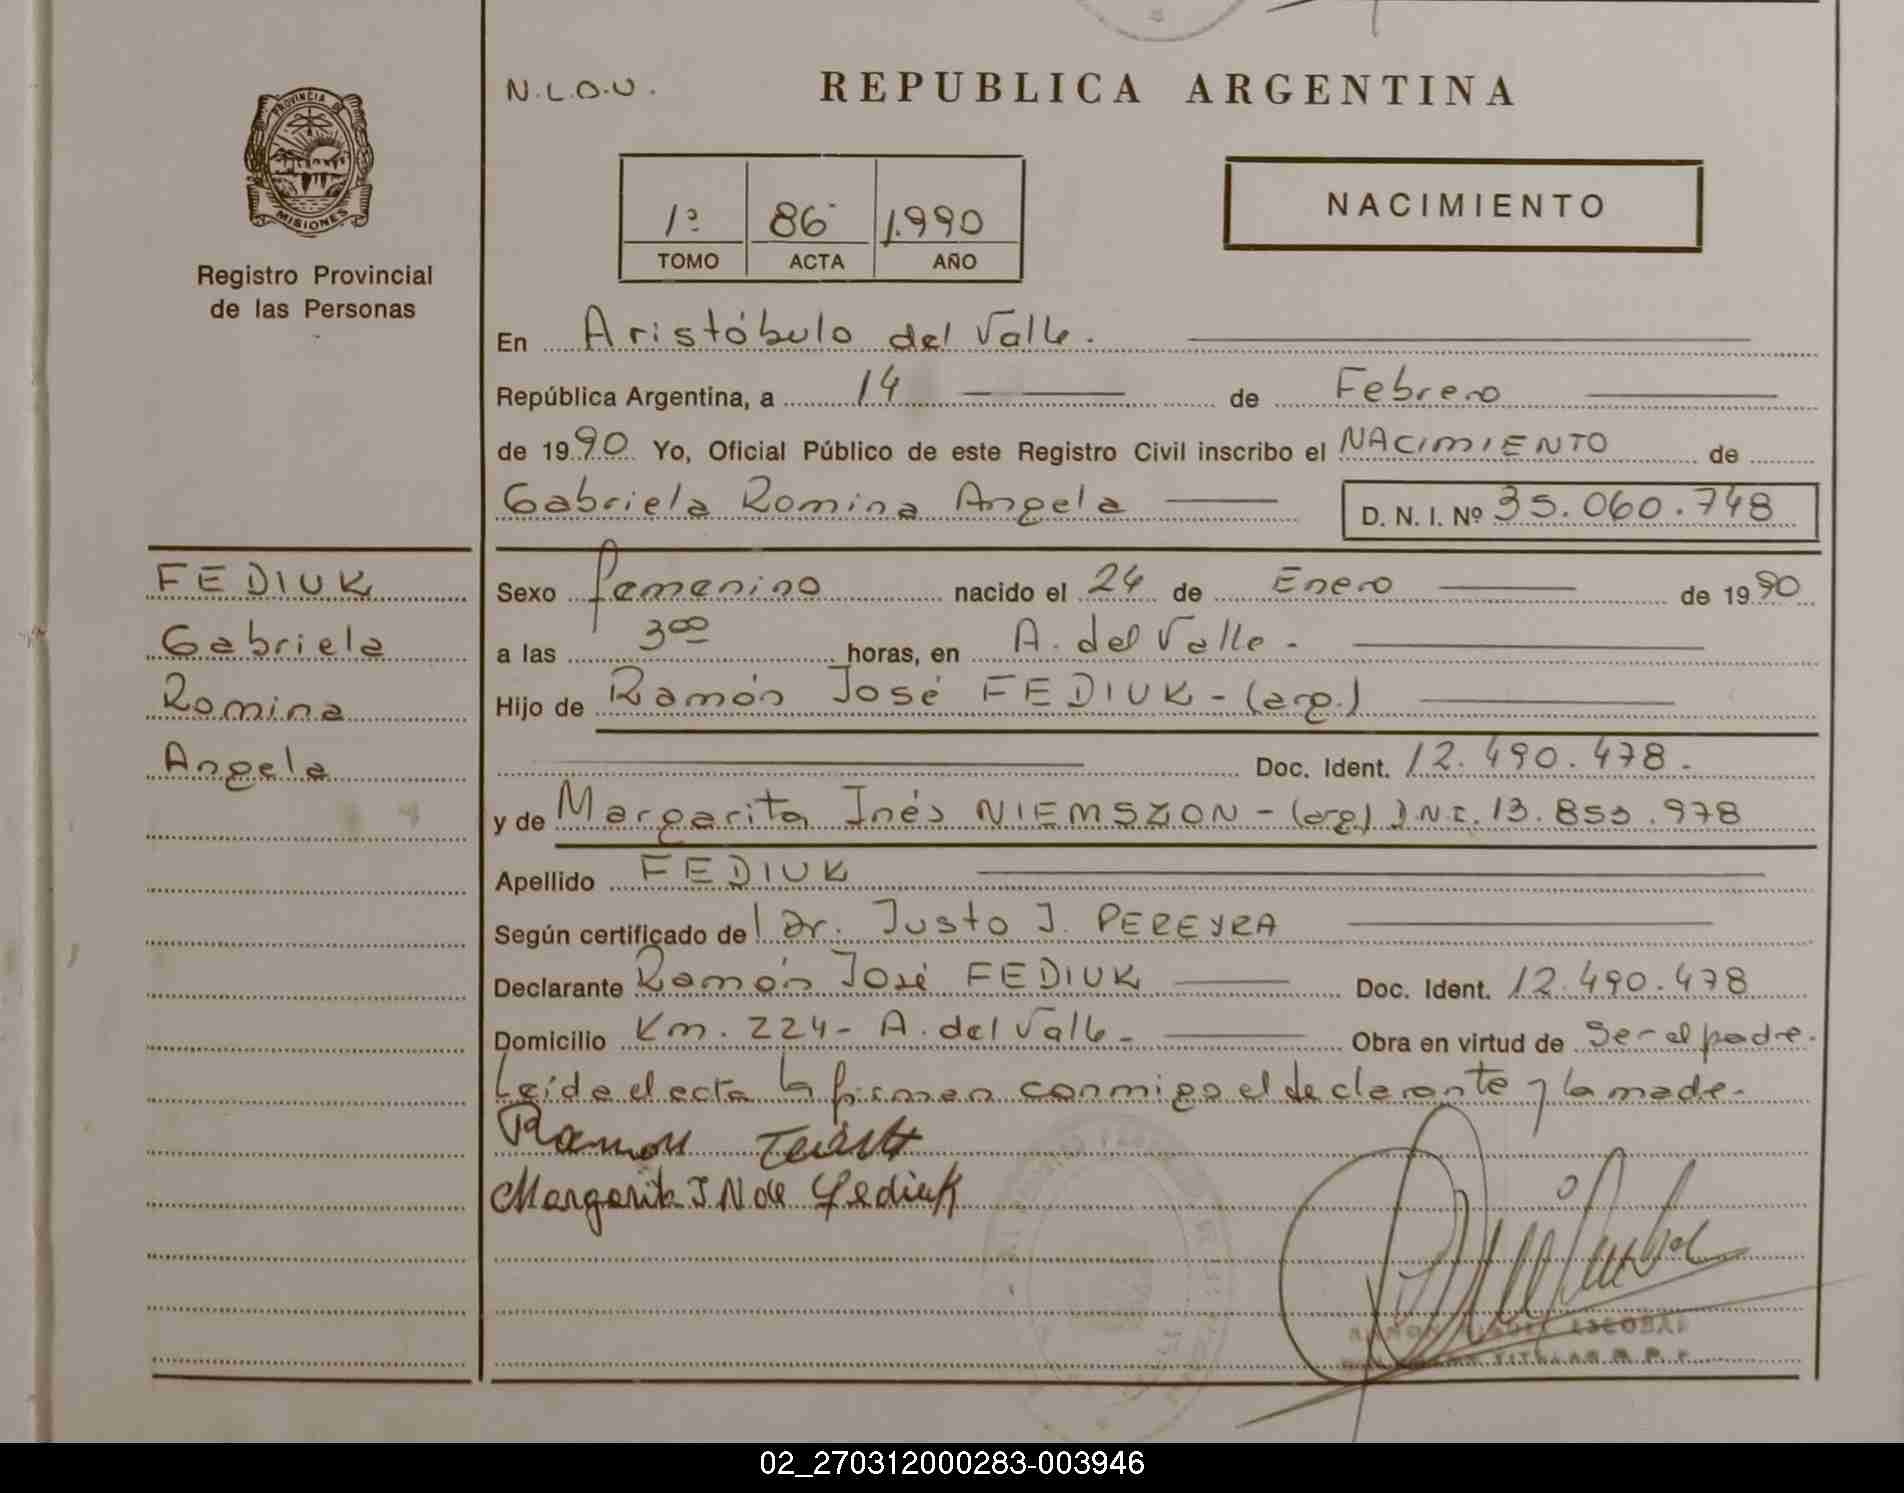 N.L.O.U.
REPUBLICA ARGENTINA
PROVINCIA DE
MISIONES
Registro Provincial
de las Personas
1º 86 1.990
TOMO ACTA AÑO
NACIMIENTO
En Aristóbulo del Valle.
República Argentina, a 14 de Febrero
de 1990 Yo, Oficial Público de este Registro Civil inscribo el NACIMIENTO de
Gabriela Romina Angela D. N. I. Nº 35.060.748
FEDIUK
Gabriela
Romina
Angela
Sexo femenino nacido el 24 de Enero de 1990
a las 3 00 horas, en A. del Valle.
Hijo de Ramón José FEDIUK - (arg.)
Doc. Ident. 12.490.478.
y de Margarita Inés NIEMSZON - (arg) D.N.I. 13.853.978
Apellido FEDIUK
Según certificado del Dr. Justo J. PEREYRA
Declarante Ramón José FEDIUK Doc. Ident. 12.490.478
Domicilio Km. 224 - A. del Valle. Obra en virtud de ser el padre.
Leída el acta la firman conmigo el declarante y la madre.
Ramon
Margarita I N de Fediuk
ESCOBAR
TITULAR R. P. P.
02_270312000283-003946